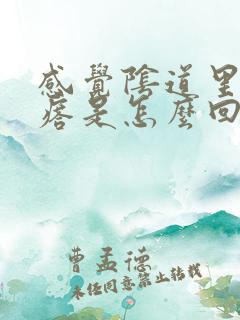 感覺陰道里
痞是怎麼回
曹孟德
未经同意禁止转载